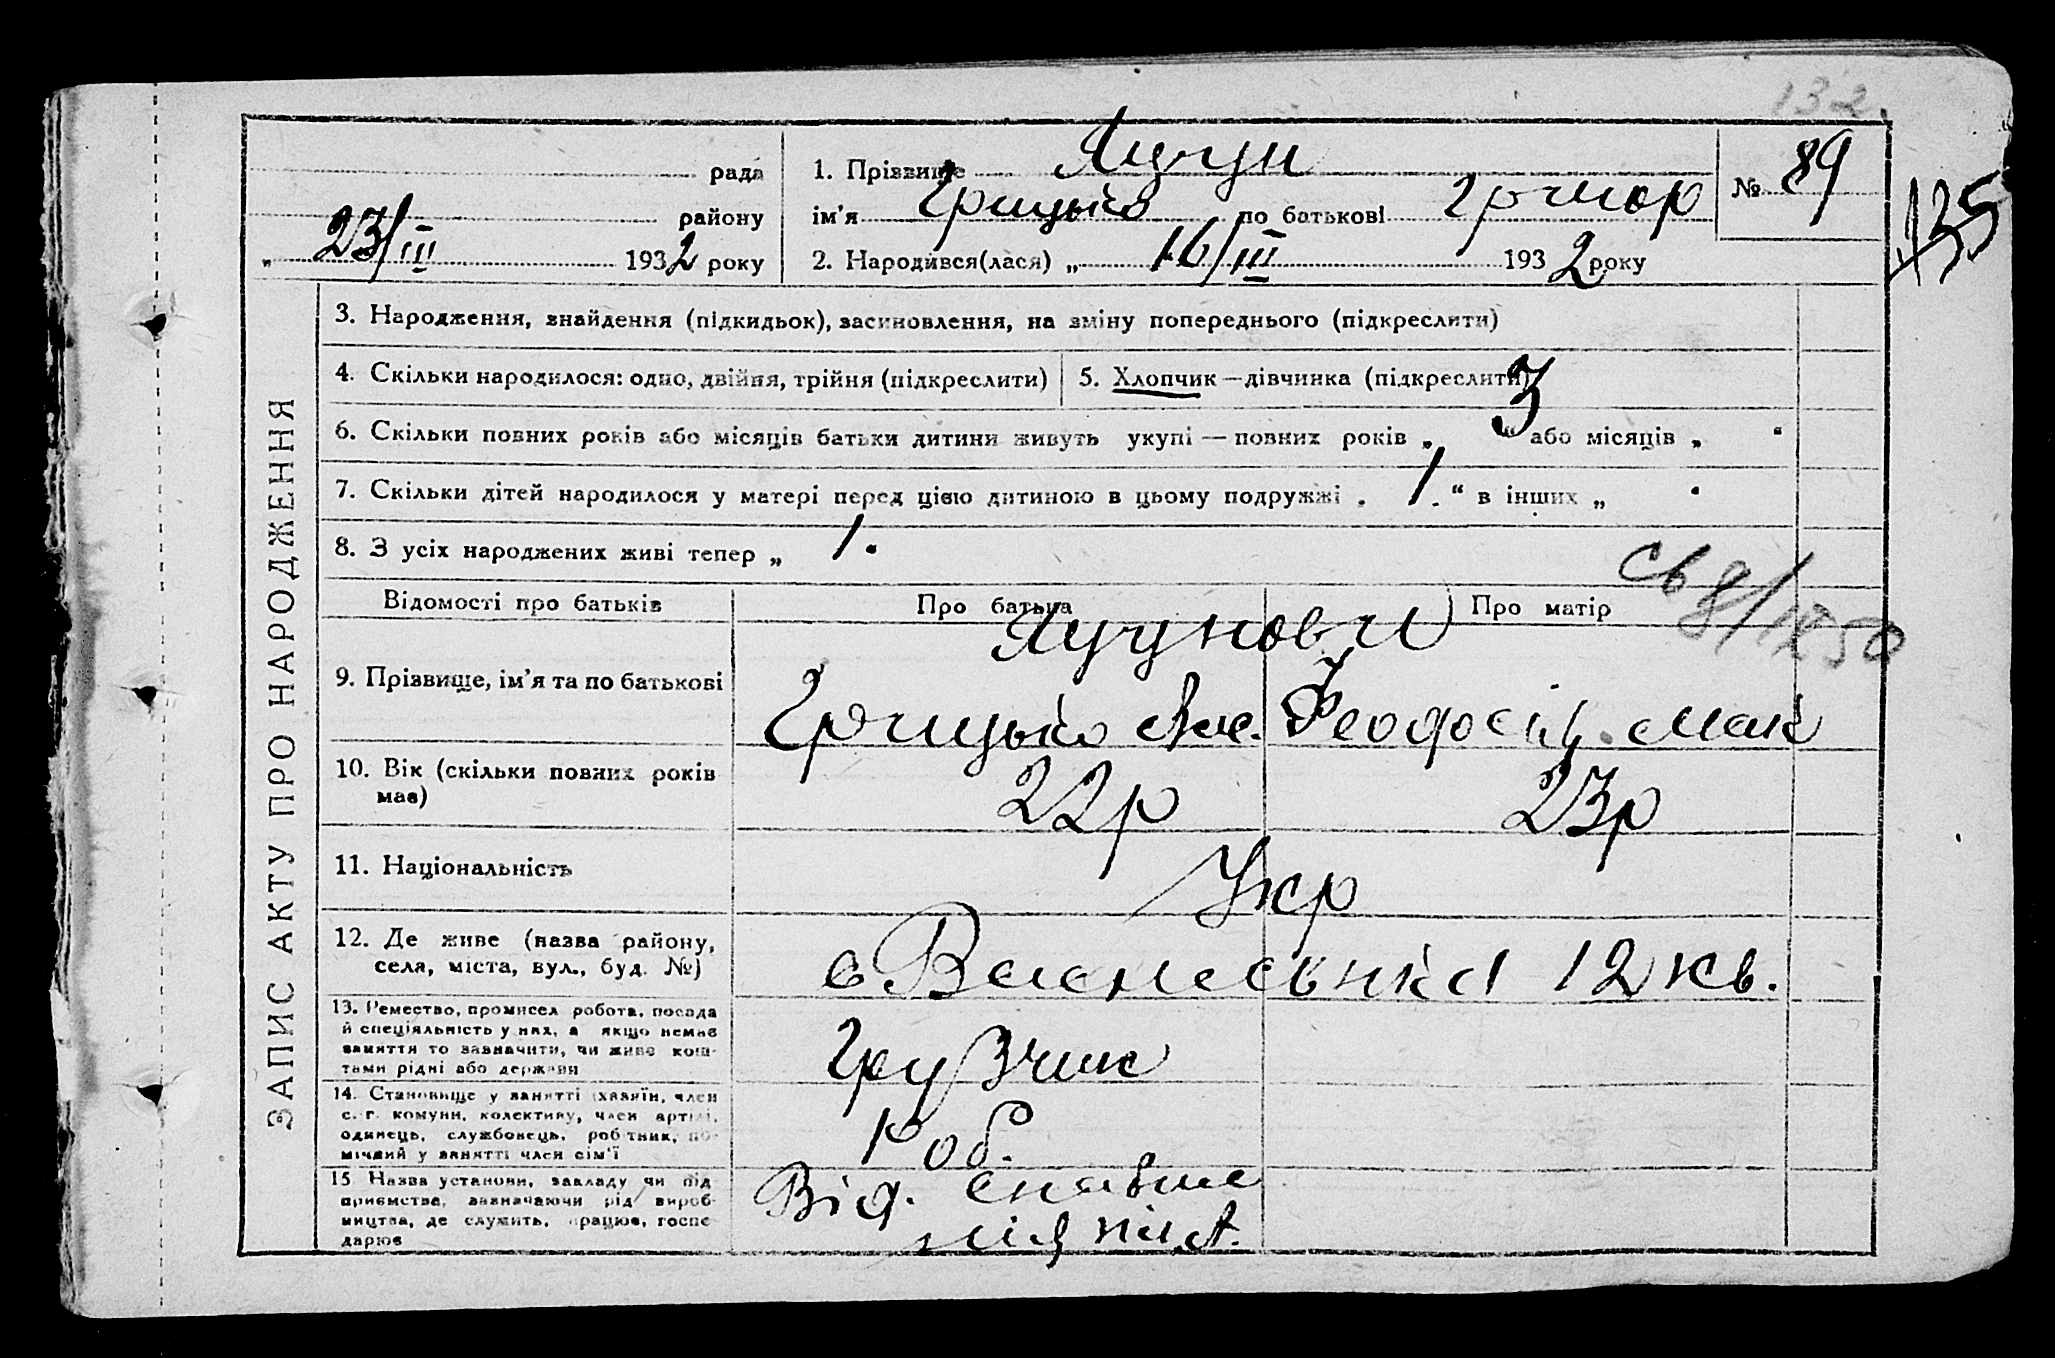 132
рада
району
23/III 1932 року
1. Прізвище Яцун
ім’я Грицько по батькові Григор
№ 89
135
2. Народився(лася) „ 16/III 1932 року
ЗАПИС АКТУ ПРО НАРОДЖЕННЯ
3. Народження, знайдення (підкидьок), засиновлення, на зміну попереднього (підкреслити)
4. Скільки народилося: одно, двійня, трійня (підкреслити)
5. Хлопчик — дівчинка (підкреслити)
6. Скільки повних років або місяців батьки дитини живуть укупі — повних років „ 3 “ або місяців „ “
7. Скільки дітей народилося у матері перед цією дитиною в цьому подружжі „ 1. “ в інших „ “
8. З усіх народжених живі тепер „ 1.
св 8/IX 50
Відомості про батьків
Про батька
Про матір
9. Прізвище, ім’я та по батькові
Грицько
22р
23р
10. Вік (скільки повних років
має)
11. Національність
Укр
12. Де живе (назва району,
села, міста, вул., буд. №)
12 кв.
13. Ремество, промисел робота, посада
й спеціяльність у них, а якщо немає
заняття то зазначити, чи живе кош-
тами рідні або держави
Грузчик
14. Становище у занятті (хазяїн, член
с.-г. комуни, колективу, член артілі,
одинець, службовець, робітник, по-
мічний у занятті член сім’ї
Роб.
15 Назва установи, закладу чи під
приємства, зазначаючи рід вироб-
ництва, де служить, працює, госпо-
дарює
Від.